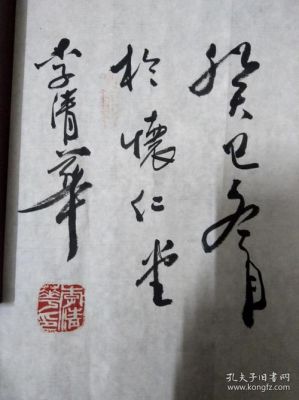 癸巳冬月
於懷仁堂
李清華
孔夫子旧书网
www.kongfz.com